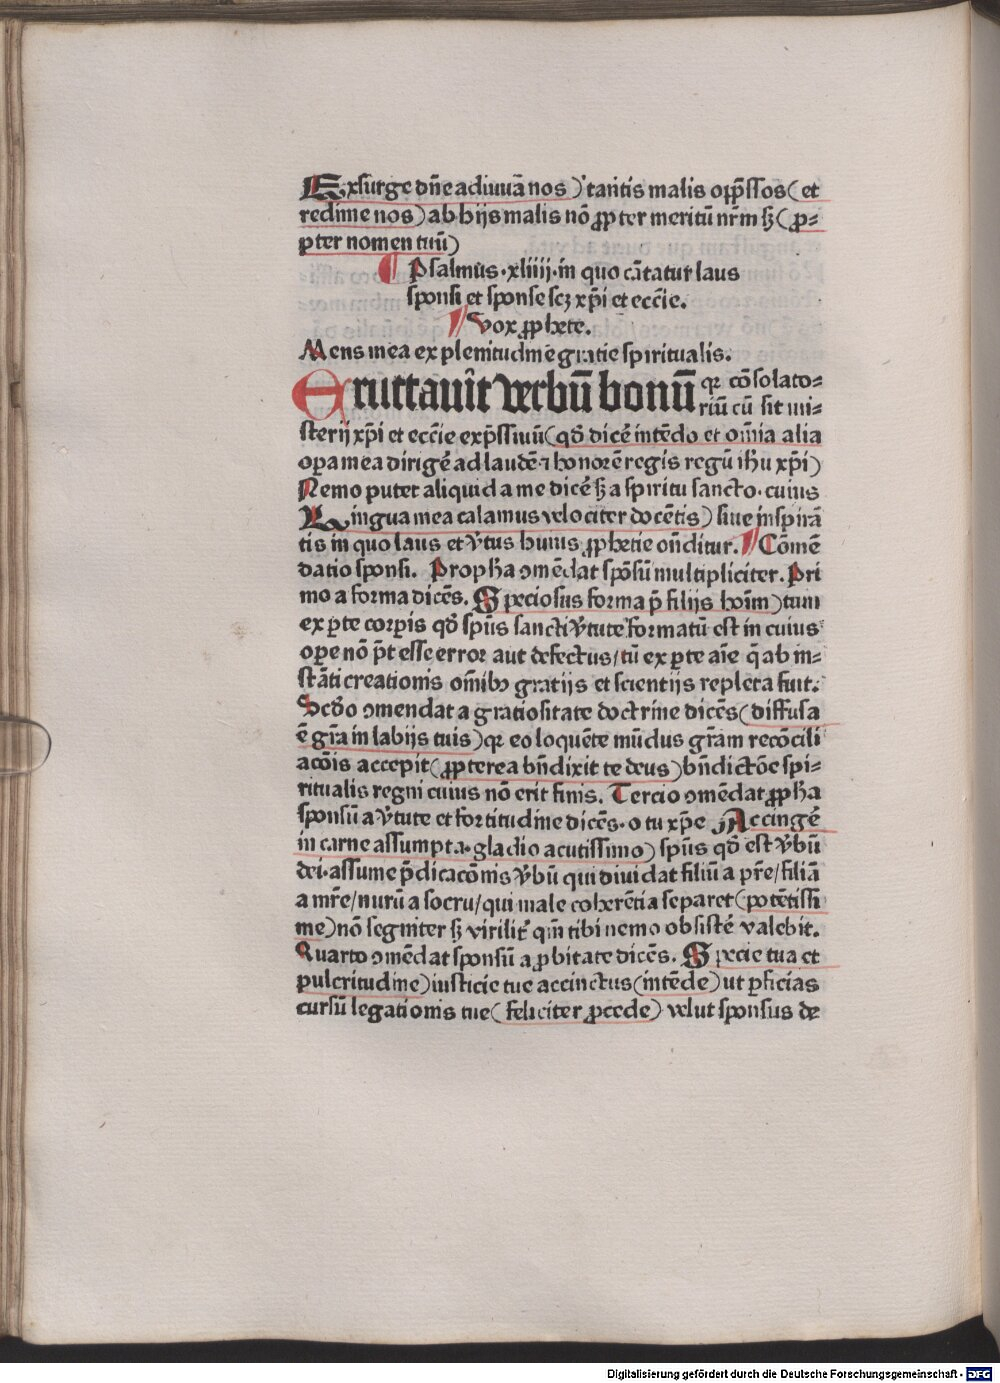 Exsurge dn̄e adiuuā nos) tantis malis opp̄ssos (et
redime nos) ab hijs malis nō ꝓpter meritū nr̄m sꝫ (ꝓ-
pter nomen tuū)
¶ Psalmus·xliiij·in quo cātatur laus
sponsi et sponse scꝫ xp̄i et eccīe.
¶ Vox ꝓphete.
Mens mea ex plenitudīne gratie spiritualis.
Eructauit verbū bonū qꝛ cōsolato-
riū cū sit mi-
sterij xp̄i et eccīe exp̄ssiuū (qđ dicē intēdo et om̄ia alia
oꝑa mea dirigē ad laudē ⁊ honorē regis regū ih̄u xp̄i)
Nemo putet aliquid a me dicē sꝫ a spiritu sancto·cuius
Lingua mea calamus velociter docētis) siue inspirā
tis in quo laus et v̄tus huius ꝓphetie on̄ditur. ¶ Cōmē
datio sponsi. Propha ꝯmēdat spōsū multipliciter. Pri
mo a forma dicēs. Speciosus forma p̄ filijs hoīm) tum
ex ꝑte corꝑis qđ sp̄us sancti v̄tute formatū est in cuius
oꝑe nō p̄t esse error aut defectus/tū ex ꝑte aīe q̄ ab in-
stāti creationis om̄ibꝫ gratijs et scientijs repleta fuit.
Scđo ꝯmendat a gratiositate doctrine dicēs (diffusa
ē gr̄a in labijs tuis) qꝛ eo loquēte mūdus gr̄am recōcili
acōis accepit (ꝓpterea bn̄dixit te deus) bn̄dictōe spi-
ritualis regni cuius nō erit finis. Tercio ꝯmēdat ꝓpha
sponsū a v̄tute et fortitudine dicēs·o tu xp̄e Accingē
in carne assumpta·gladio acutissimo) sp̄us qđ est v̄bū
dei·assume p̄dicacōnis v̄bū qui diuidat filiū a pr̄e/filiā
a mr̄e/nurū a socru/qui male coherētia separet (potētissi
me) nō segniter sꝫ virilit̄ qm̄ tibi nemo obsistē valebit.
Quarto ꝯmēdat sponsū a ꝓbitate dicēs. Specie tua et
pulcritudine) iusticie tue accinctus (intēde) ut ꝑficias
cursū legationis tue (feliciter ꝓcede) velut sponsus de
Digitalisierung gefördert durch die Deutsche Forschungsgemeinschaft - DFG